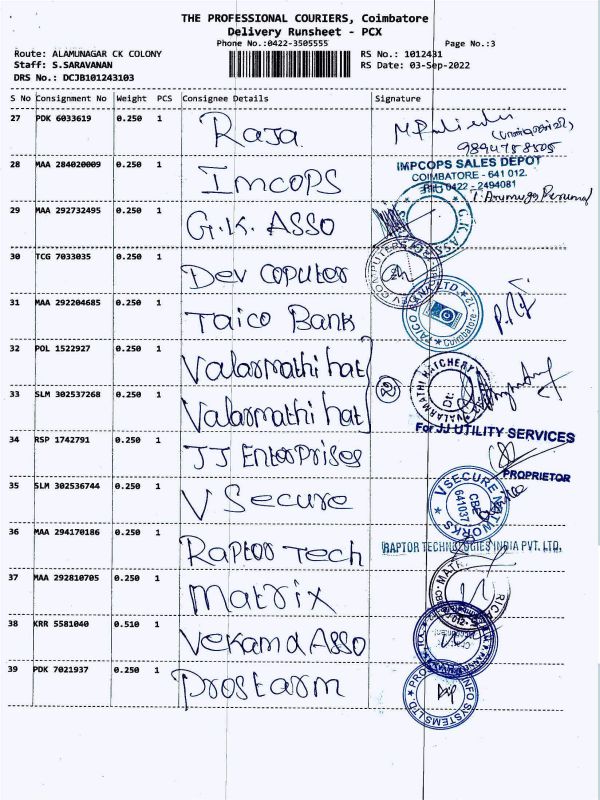 THE PROFESSIONAL COURIERS, Coimbatore
Delivery Runsheet - PCX
Phone No.:0422-3505555
Page No.:3
Route: ALAMUNAGAR CK COLONY
RS No.: 1012431
Staff: S.SARAVANAN
RS Date: 03-Sep-2022
DRS No.: DCJB101243103
S No Consignment No Weight PCS Consignee Details Signature
27 PDK 6033619 0.250 1 Raja
9894758505
28 MAA 284020009 0.250 1 Imcops
IMPCOPS SALES DEPOT
COIMBATORE - 641 012.
0422 - 2494081
29 MAA 292732495 0.250 1 G.K. ASSO
G.K. ASSO
30 TCG 7033035 0.250 1 Dev Coputer
DEV COMPUTERS
31 MAA 292204685 0.250 1 Taico Bank
TAICO BANK LTD. Coimbatore-12
32 POL 1522927 0.250 1 Valarmathi hat
33 SLM 302537268 0.250 1 Valarmathi hat
2
VALARMATHI HATCHERY
Dt:
34 RSP 1742791 0.250 1 JJ Enterprises
For JJ UTILITY SERVICES
PROPRIETOR
35 SLM 302536744 0.250 1 V Secure
V SECURE NETWORKS
CBE
641037
36 MAA 294170186 0.250 1 Raptor Tech
RAPTOR TECHNOLOGIES INDIA PVT. LTD.
37 MAA 292810705 0.250 1 Matrix
38 KRR 5581040 0.510 1 Vekam d Asso
39 PDK 7021937 0.250 1 Prostarm
PROSTARM INFO SYSTEMS LTD.